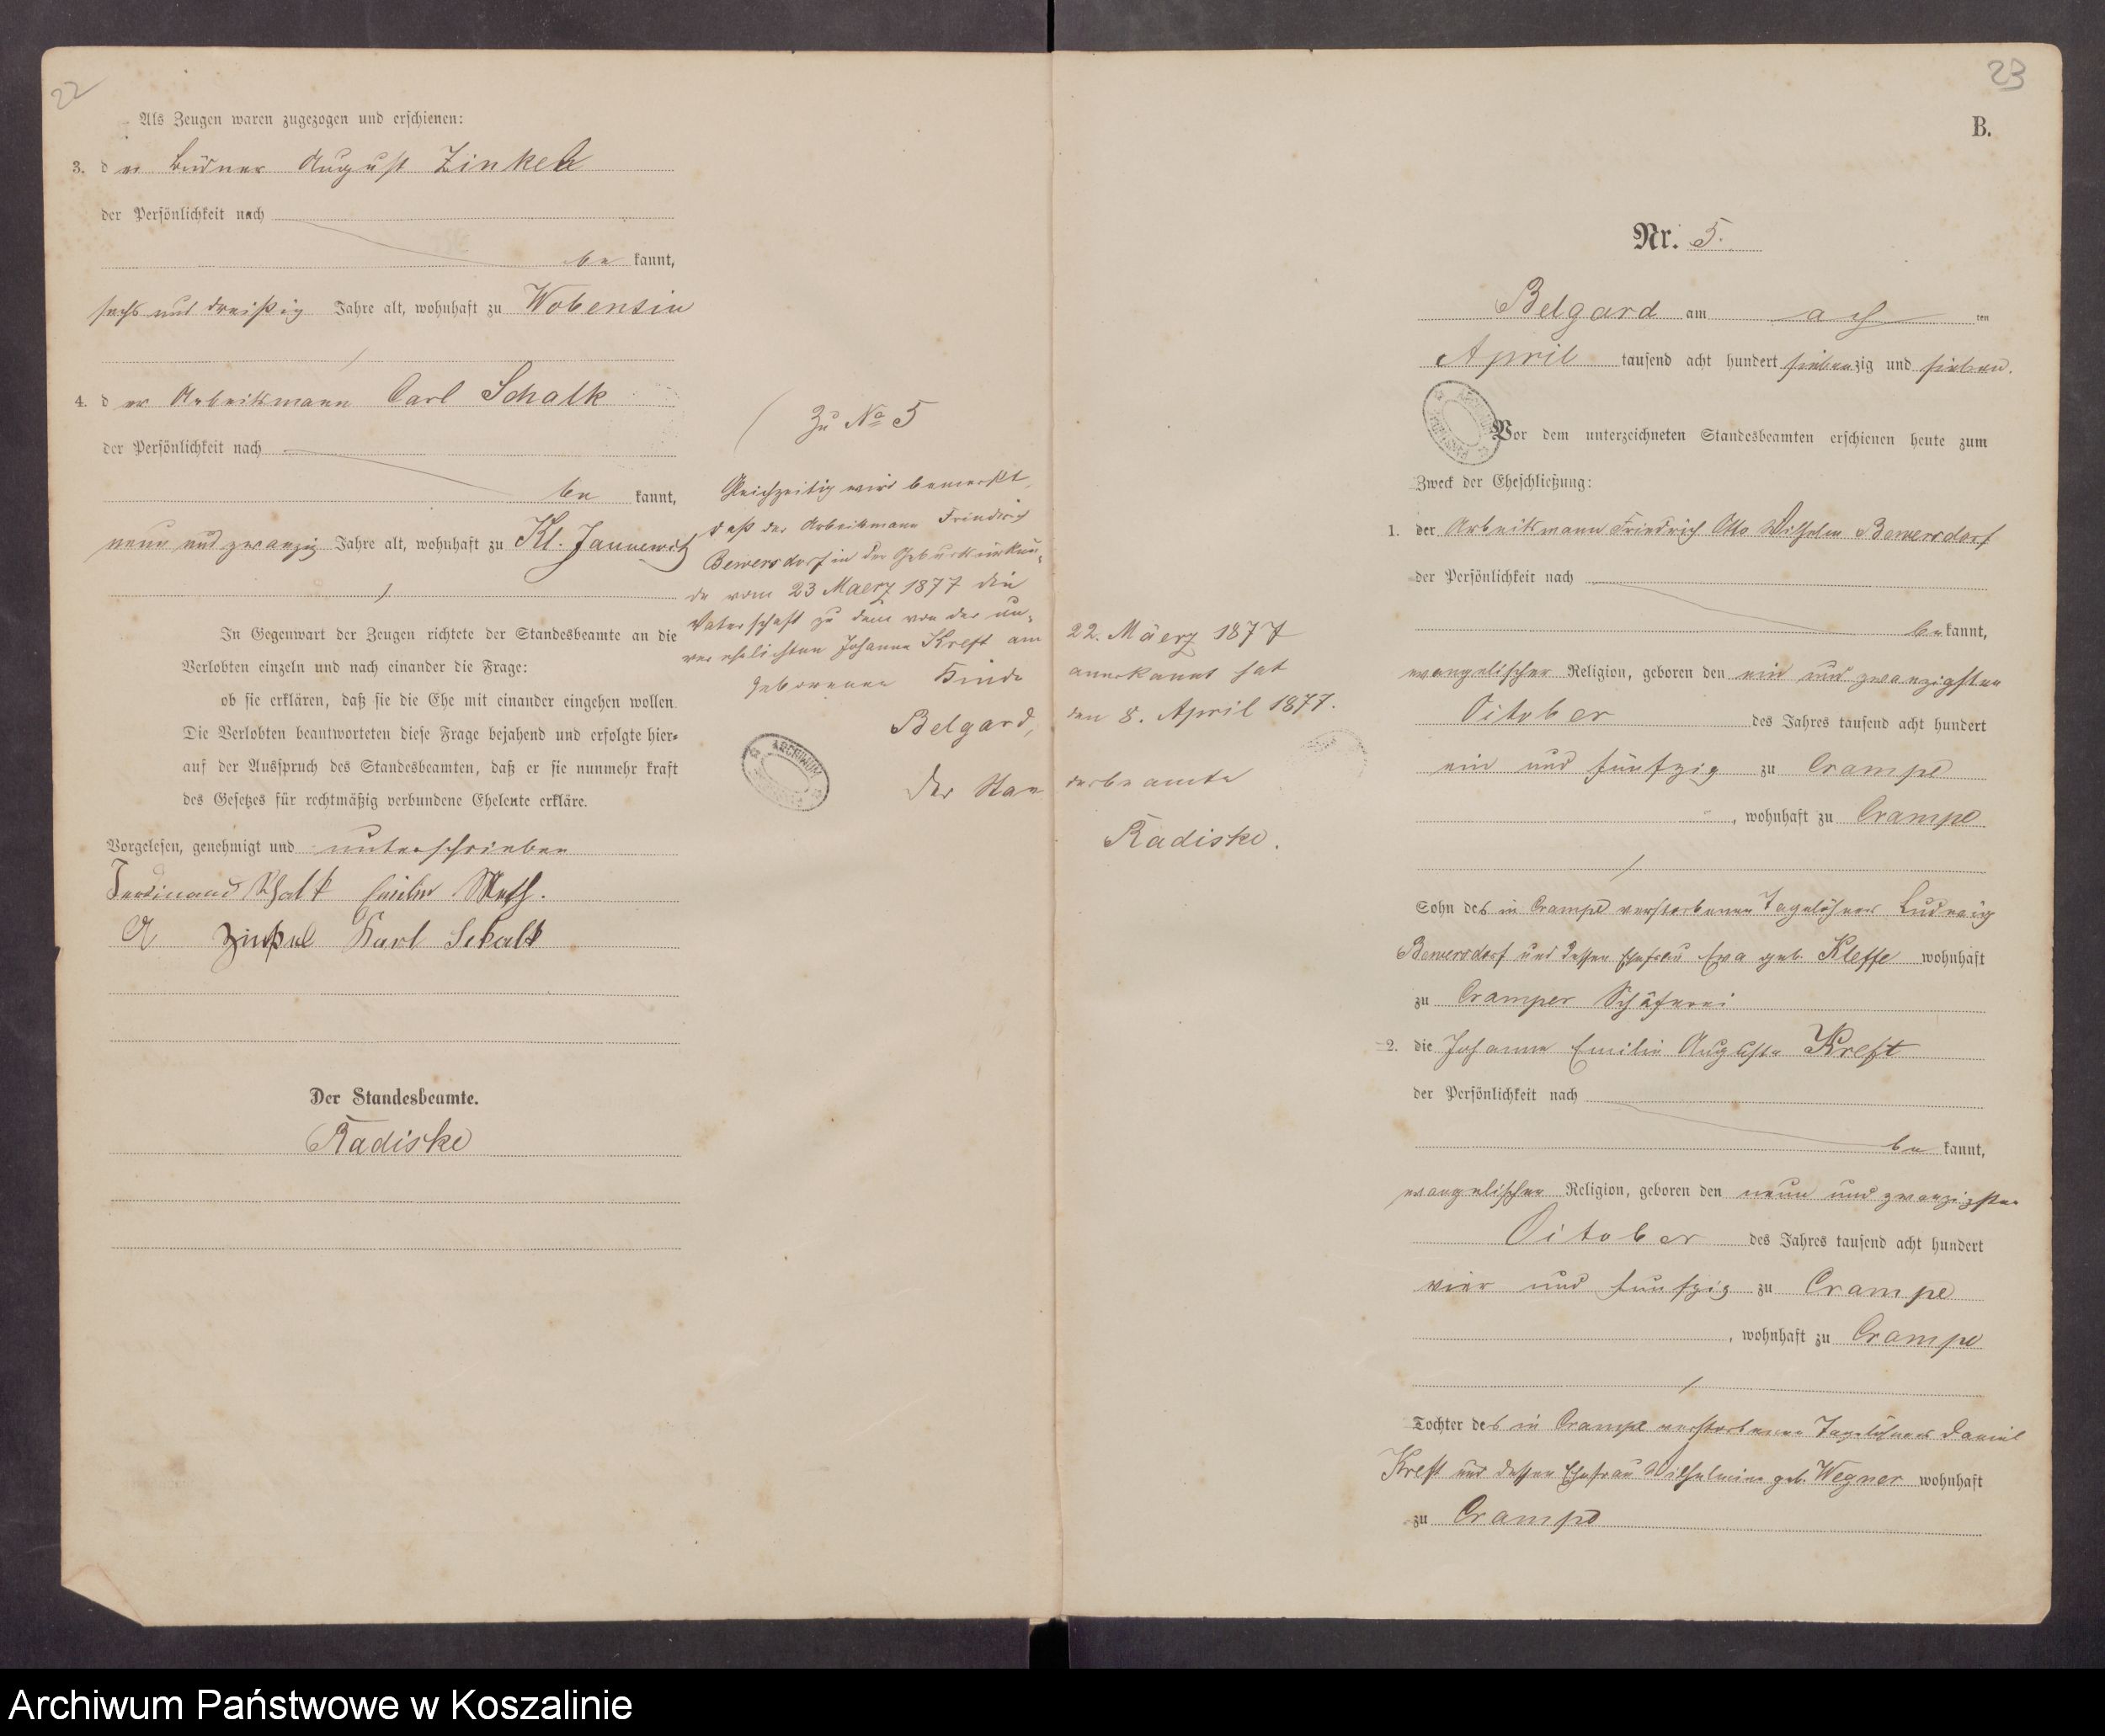 22
Als Zeugen waren zugezogen und erschienen:
3. der Büdner August Zinkel
der Persönlichkeit nach
bekannt,
sechs und dreißig Jahre alt, wohnhaft zu Wobensin
4. der Arbeitsmann Carl Schalk
der Persönlichkeit nach
bekannt,
neun und zwanzig Jahre alt, wohnhaft zu Kl. Jannewitz
In Gegenwart der Zeugen richtete der Standesbeamte an die
Verlobten einzeln und nach einander die Frage:
ob sie erklären, daß sie die Ehe mit einander eingehen wollen.
Die Verlobten beantworteten diese Frage bejahend und erfolgte hier-
auf der Ausspruch des Standesbeamten, daß er sie nunmehr kraft
des Gesetzes für rechtmäßig verbundene Eheleute erkläre.
Vorgelesen, genehmigt und unterschrieben
Ferdinand Schalk Emilie
A Zinkel Karl Schalk
Der Standesbeamte.
Radiske
Zu No 5
Gleichzeitig wird bemerkt,
daß der Arbeitsmann Friedrich
Bewersdorf in der Geburtsurkun-
de vom 23 Maerz 1877 die
Vaterschaft zu dem von der un-
verehelichten Johanna Kreft am 22. Mäerz 1877
geborenen Kinde anerkannt hat
Belgard, den 8. April 1877.
Der Standesbeamte
Radiske.
ARCHIWUM
23
B.
Nr. 5.
Belgard am acht ten
April tausend acht hundert siebenzig und sieben.
Vor dem unterzeichneten Standesbeamten erschienen heute zum
Zweck der Eheschließung:
1. der Arbeitsmann Friedrich Otto Wilhelm Bewersdorf
der Persönlichkeit nach
bekannt,
evangelischer Religion, geboren den ein und zwanzigsten
October des Jahres tausend acht hundert
ein und fünfzig zu Crampe
, wohnhaft zu Crampe
Sohn des in Crampe verstorbenen Tagelöhners Ludwig
Bewersdorf und dessen Ehefrau Eva geb. Kleffe wohnhaft
zu Cramper Schäferei
2. die Johanna Emilie Auguste Kreft
der Persönlichkeit nach
bekannt,
evangelischer Religion, geboren den neun und zwanzigsten
October des Jahres tausend acht hundert
vier und funfzig zu Crampe
, wohnhaft zu Crampe
Tochter des in Crampe verstorbenen Tagelöhners Daniel
Kreft und dessen Ehefrau Wilhelmine geb. Wegner wohnhaft
zu Crampe
Archiwum Państwowe w Koszalinie